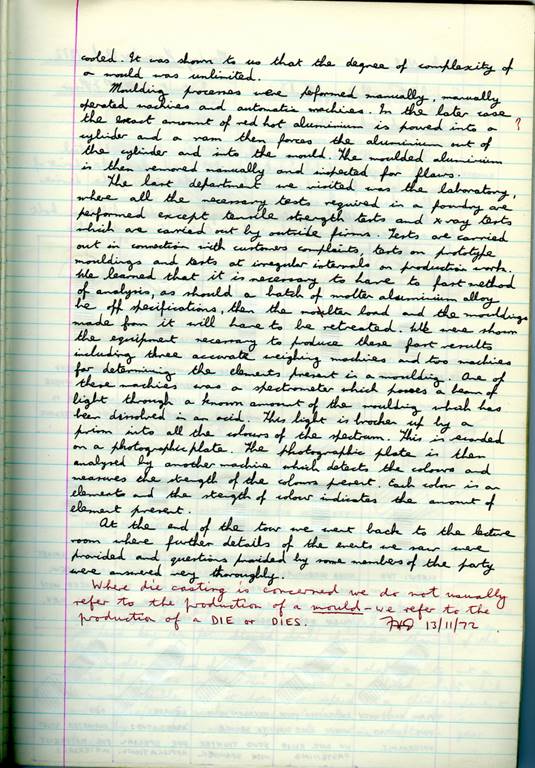 cooled. It was shown to us that the degree of complexity of
a mould was unlimited.
Moulding processes were peformed manually, manually
operated machies and automatic machies. In the later case
the exact amount of red hot aluminium is powed into a ?
cylinder and a ram then forces the aluminium out of
the cylinder and into the mould. The moulded aluminium
is then removed manually and inspected for flaws.
The last department we visited was the laboratory,
where all the necessary tests required in a foundry are
performed except tensile strength tests and x-ray tests
which are carried out by outside firms. Tests are carried
out in connection with customers complaints, tests on prototype
mouldings and tests at irregular intervals on production work.
We learned that it is necessary to have to fast method
of analysis, as should a batch of molter alauminium alloy
be off specifications, then the molter load and the mouldings
made from it will have to be retreated. We were shown
the equipment necessary to produce these fast results
including three accurate weighing machines and two machines
for determining the elements present in a moulding. One of
these machines was a spectrometer which passes a beam of
light through a known amount of the moulding which has
been dissolved in an acid. This light is broken up by a
prism into all the colours of the spectrum. This is recorded
on a photographic plate. The photographic plate is then
analysed by another machine which detects the colours and
measures the stength of the colours present. Each color is an
elements and the stength of colour indicates the amount of
element present.
At the end of the tour we went back to the lecture
room where further details of the events we saw were
provided and questions provided by some members of the party
were answered very thoroughly.
Where die casting is concerned we do not usually
refer to the production of a mould – we refer to the
production of a DIE or DIES. 13/11/72